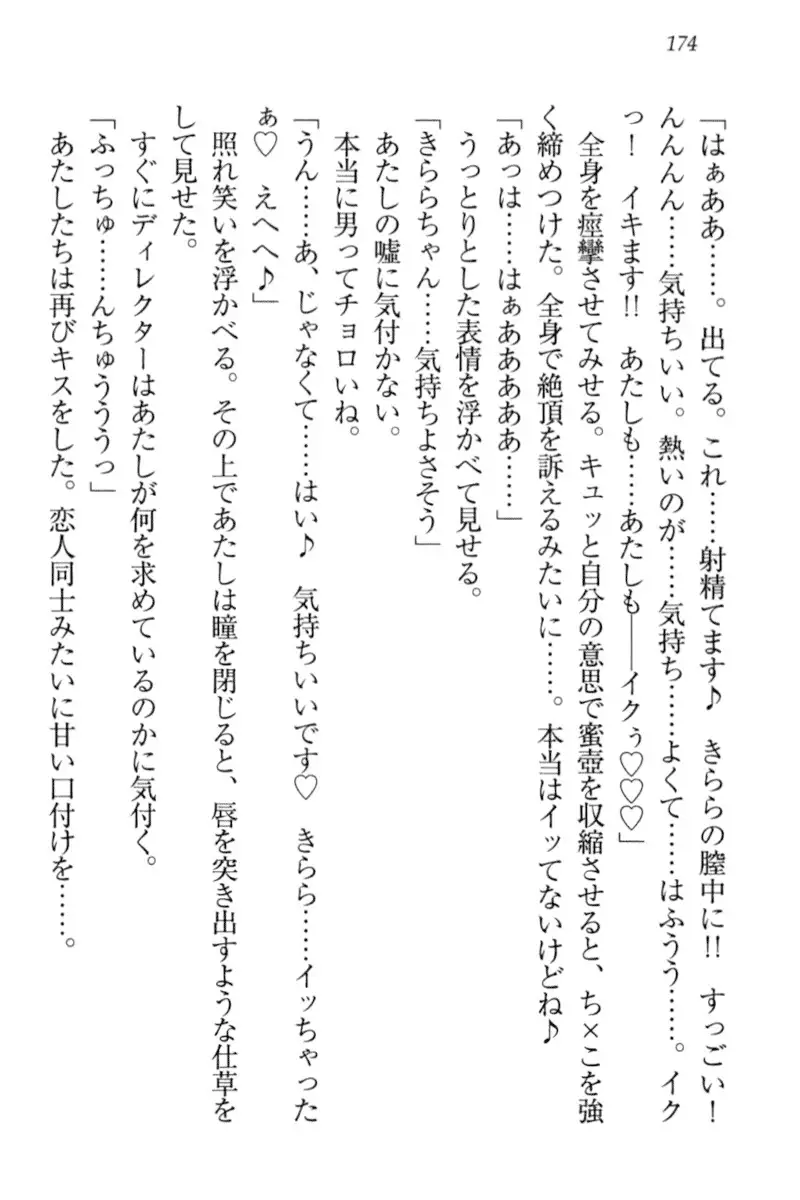 174
「はぁああ……。出てる。これ……射精てます♪　きららの膣中に!!　すっごい！
んんんん……気持ちいい。熱いのが……気持ち……よくて……はふうう……。イク
っ！　イキます!!　あたしも……あたしも――イクぅ♡♡♡」
　全身を痙攣させてみせる。キュッと自分の意思で蜜壺を収縮させると、ち×こを強
く締めつけた。全身で絶頂を訴えるみたいに……。本当はイッてないけどね♪
「あっは……はぁあああああ……」
　うっとりとした表情を浮かべて見せる。
「きららちゃん……気持ちよさそう」
　あたしの嘘に気付かない。
　本当に男ってチョロいね。
「うん……あ、じゃなくて……はい♪　気持ちいいです♡　きらら……イッちゃった
ぁ♡　えへへ♪」
　照れ笑いを浮かべる。その上であたしは瞳を閉じると、唇を突き出すような仕草を
して見せた。
　すぐにディレクターはあたしが何を求めているのかに気付く。
「ふっちゅ……んちゅうううっ」
　あたしたちは再びキスをした。恋人同士みたいに甘い口付けを……。